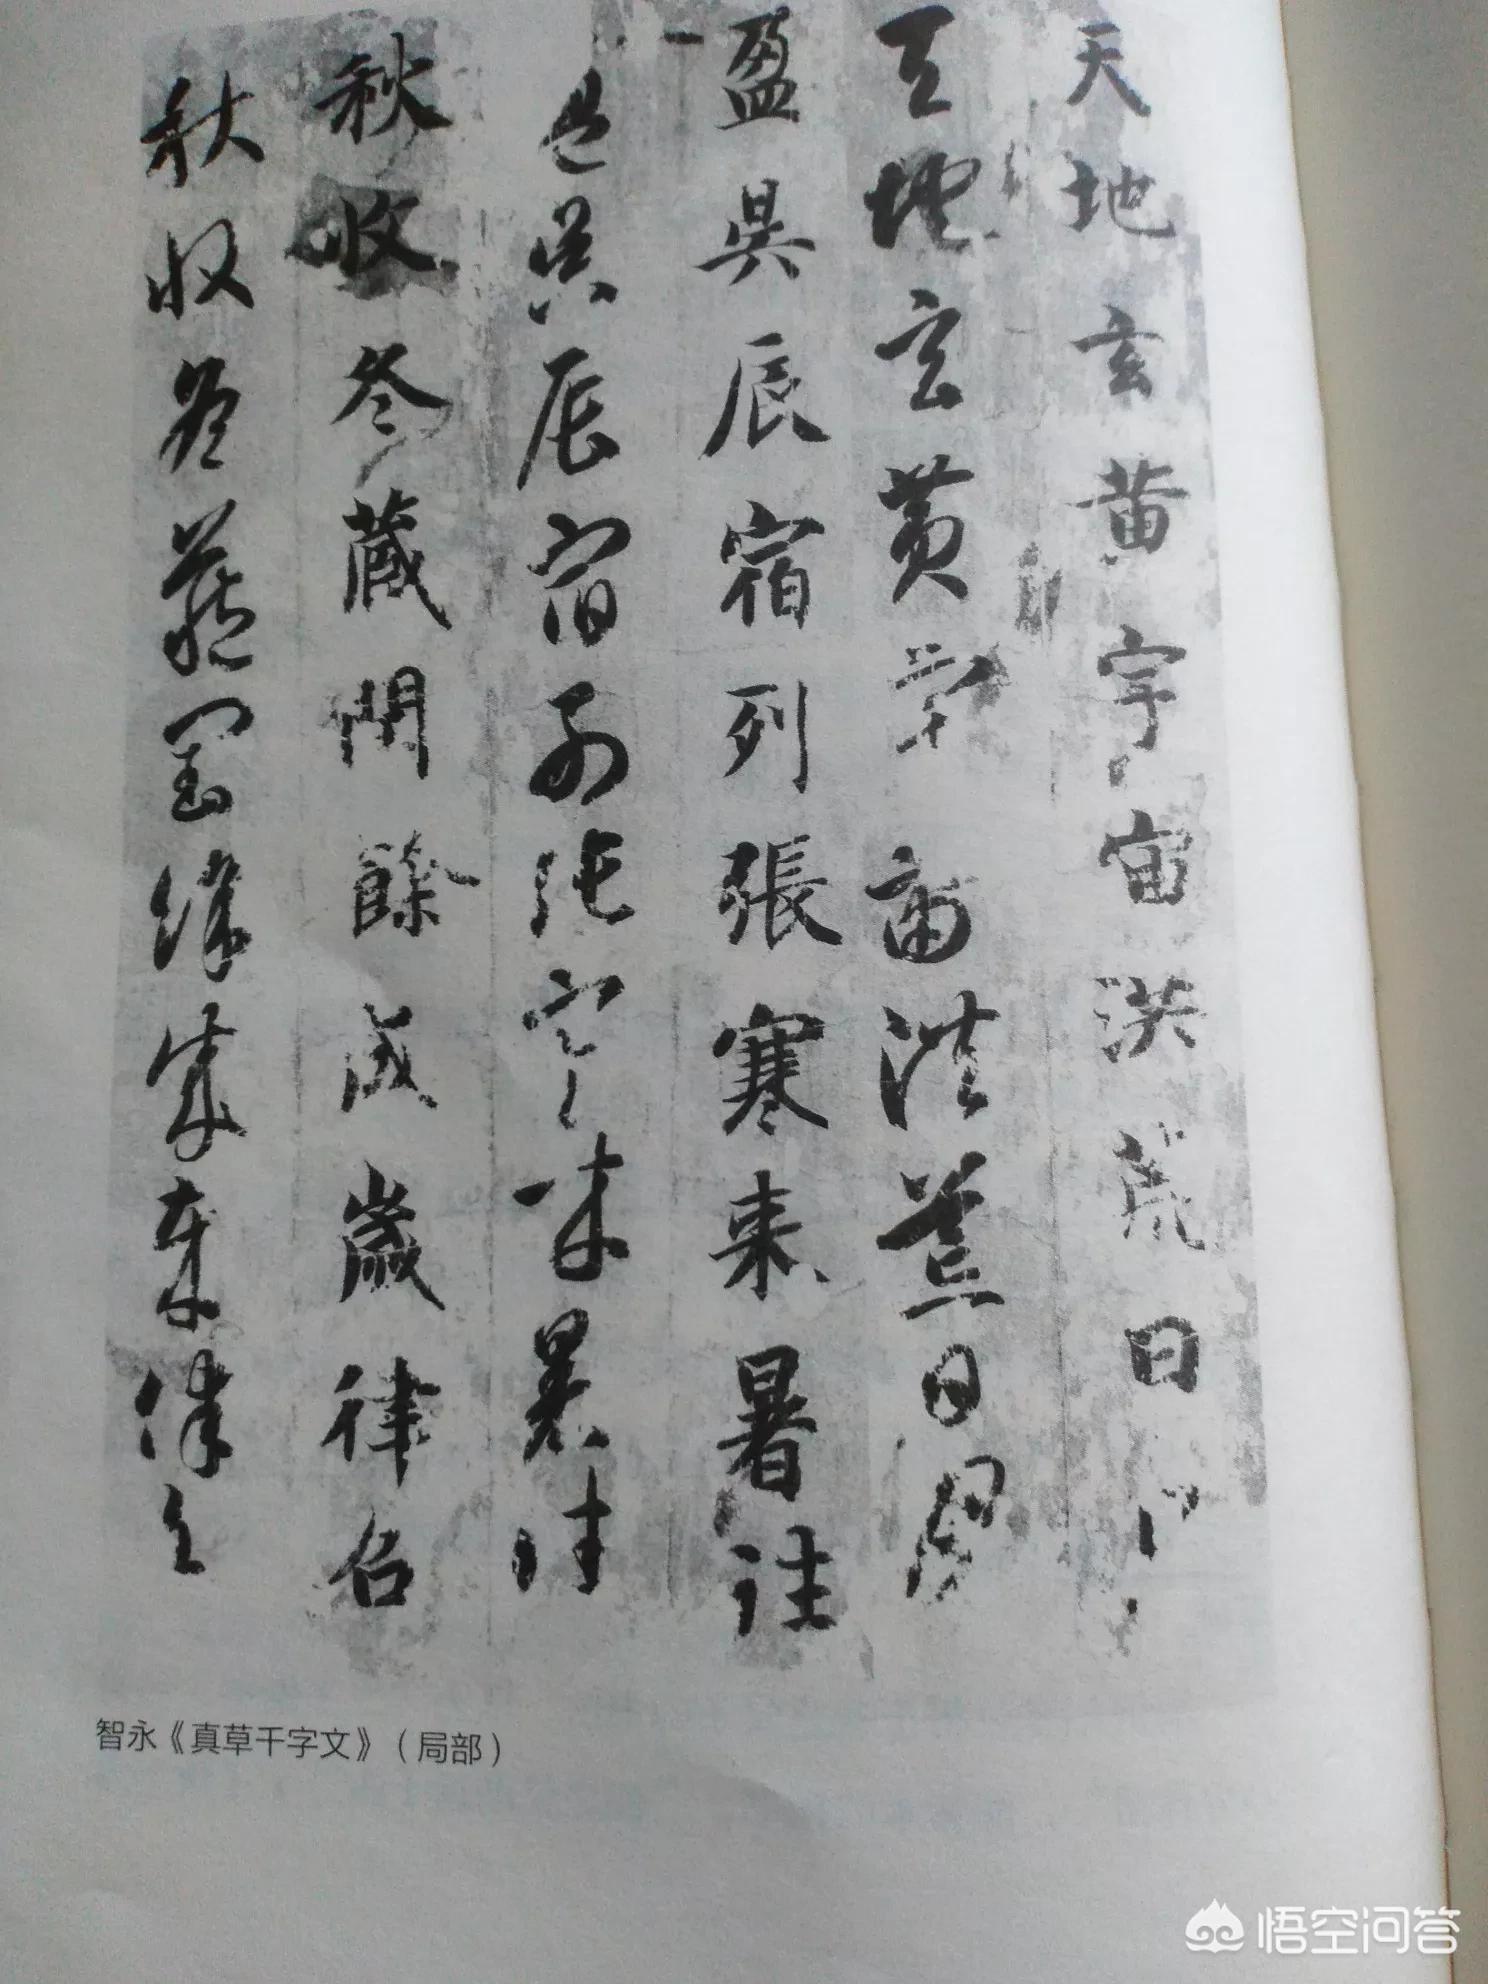 天地玄黄宇宙洪荒日
天地玄黄宇宙洪荒日月
盈昃辰宿列張寒来暑往
盈昃辰宿列張寒来暑往
秋收冬藏閏餘成歲律召
秋收冬藏閏餘成歲律召
智永《真草千字文》(局部)
悟空问答